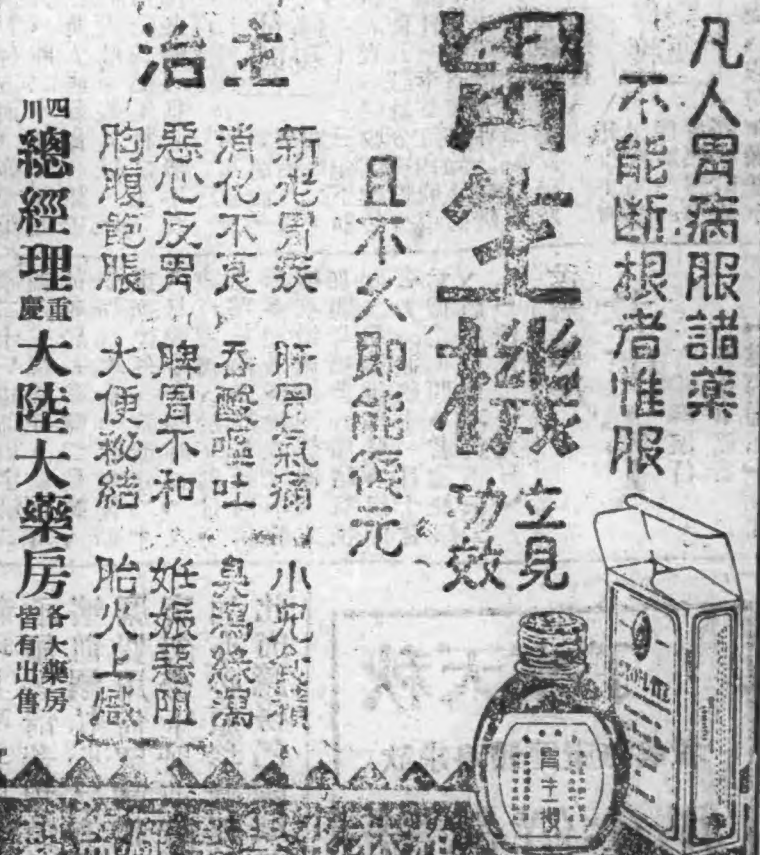 凡人胃病服諸藥
不能断根者惟服
胃生機
立見
功效
且不久即能復元
主治
新老胃疾 肝胃氣痛 小兒食積
消化不良 吞酸嘔吐 臭瀉綠瀉
惡心反胃 脾胃不和 妊娠惡阻
胸腹飽脹 大便秘結 胎火上熾
四川總經理重慶大陸大藥房各大藥房皆有出售
胃生機
柏林化學